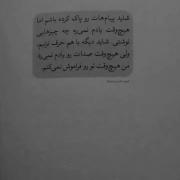 شاید پیام‌هات رو پاک کرده باشم اما
هیچ‌وقت یادم نمی‌ره چه چیزهایی
نوشتی. شاید دیگه با هم حرف نزنیم،
ولی هیچ‌وقت صدات رو یادم نمی‌ره.
من هیچ‌وقت تو رو فراموش نمی‌کنم.